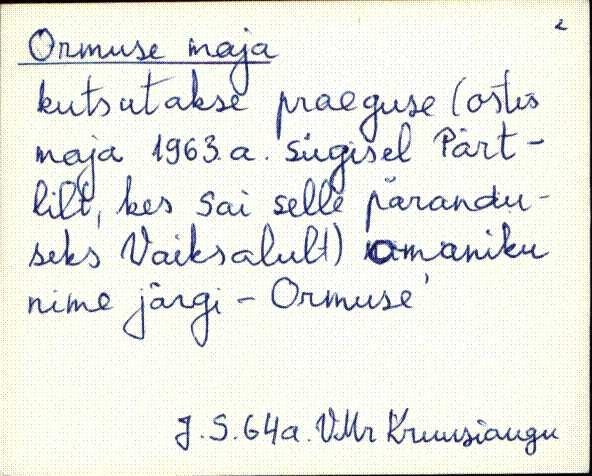 2
Ormuse maja
kutsutakse praeguse (ostis
maja 1963.a. sügisel Pärt-
lilt, kes sai selle pärandu-
seks Vaiksalult) omaniku
nime järgi - Ormuse'
J. S. 64a. VMr Kruusiaugu